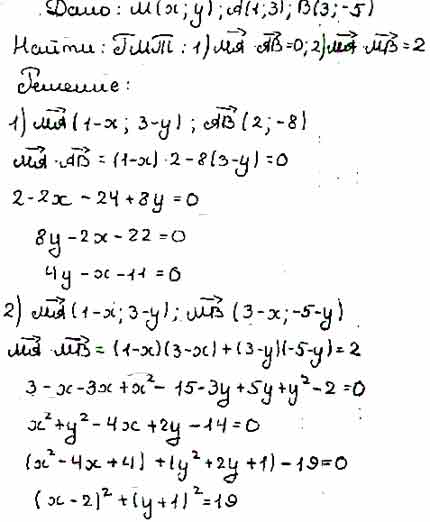 Дано: M(x; y); A(1; 3); B(3; -5)
Найти: ГМТ: 1) MA⃗ · AB⃗ = 0; 2) MA⃗ · MB⃗ = 2
Решение:
1) MA⃗ (1-x; 3-y); AB⃗ (2; -8)
MA⃗ · AB⃗ = (1-x) · 2 - 8(3-y) = 0
2 - 2x - 24 + 8y = 0
8y - 2x - 22 = 0
4y - x - 11 = 0
2) MA⃗ (1-x; 3-y); MB⃗ (3-x; -5-y)
MA⃗ · MB⃗ = (1-x)(3-x) + (3-y)(-5-y) = 2
3 - x - 3x + x² - 15 - 3y + 5y + y² - 2 = 0
x² + y² - 4x + 2y - 14 = 0
(x² - 4x + 4) + (y² + 2y + 1) - 19 = 0
(x - 2)² + (y + 1)² = 19